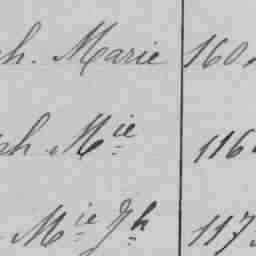 ph. Marie 160
ph Mie 116
Mie Jh 117